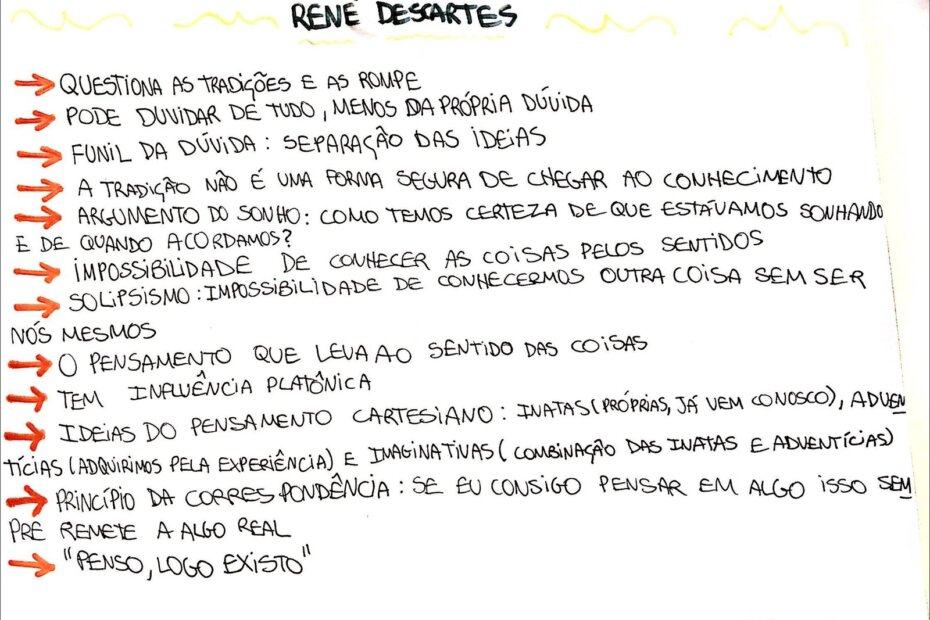 RENÉ DESCARTES
→ QUESTIONA AS TRADIÇÕES E AS ROMPE
→ PODE DUVIDAR DE TUDO, MENOS DA PRÓPRIA DÚVIDA
→ FUNIL DA DÚVIDA: SEPARAÇÃO DAS IDEIAS
→ A TRADIÇÃO NÃO É UMA FORMA SEGURA DE CHEGAR AO CONHECIMENTO
→ ARGUMENTO DO SONHO: COMO TEMOS CERTEZA DE QUE ESTÁVAMOS SONHANDO
E DE QUANDO ACORDAMOS?
→ IMPOSSIBILIDADE DE CONHECER AS COISAS PELOS SENTIDOS
→ SOLIPSISMO: IMPOSSIBILIDADE DE CONHECERMOS OUTRA COISA SEM SER
NÓS MESMOS
→ O PENSAMENTO QUE LEVA AO SENTIDO DAS COISAS
→ TEM INFLUÊNCIA PLATÔNICA
→ IDEIAS DO PENSAMENTO CARTESIANO: INATAS (PRÓPRIAS, JÁ VEM CONOSCO), ADVEN
TÍCIAS (ADQUIRIMOS PELA EXPERIÊNCIA) E IMAGINATIVAS (COMBINAÇÃO DAS INATAS E ADVENTÍCIAS)
→ PRINCÍPIO DA CORRESPONDÊNCIA: SE EU CONSIGO PENSAR EM ALGO ISSO SEM
PRE REMETE A ALGO REAL
→ "PENSO, LOGO EXISTO"